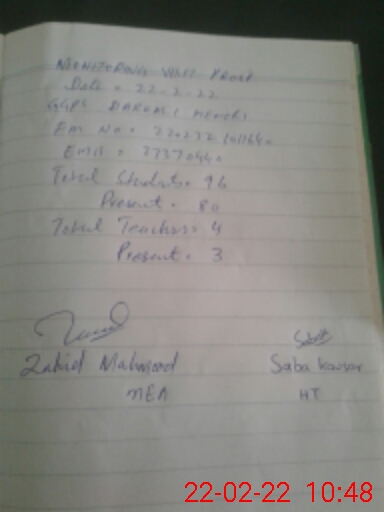 MONITORING VISIT PROOF
Date = 22-2-22
GGPS
EMIS = 37370440
Total Students = 96
Present = 80
Total Teachers = 4
Present = 3
Zahid Mahmood
Saba Kausar
MEA
HT
22-02-22 10:48